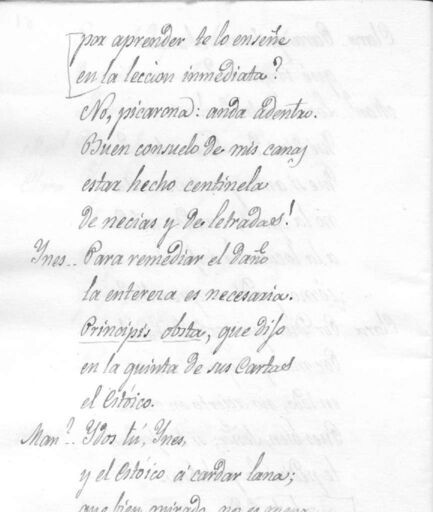 por aprender te lo enseñe
en la leccion inmediata?
No, picarona: anda adentro.
Buen consuelo de mis canas
estar hecho centinela
de necias y de letradas!
Ynes.. Para remediar el daño
la entereza es necesaria.
Principiis obsta, que dijo
en la quinta de sus Cartas
el Estóico.
Man.l Ydos tú, Ynes,
y el Estóico á cardar lana;
que bien mirado, no es